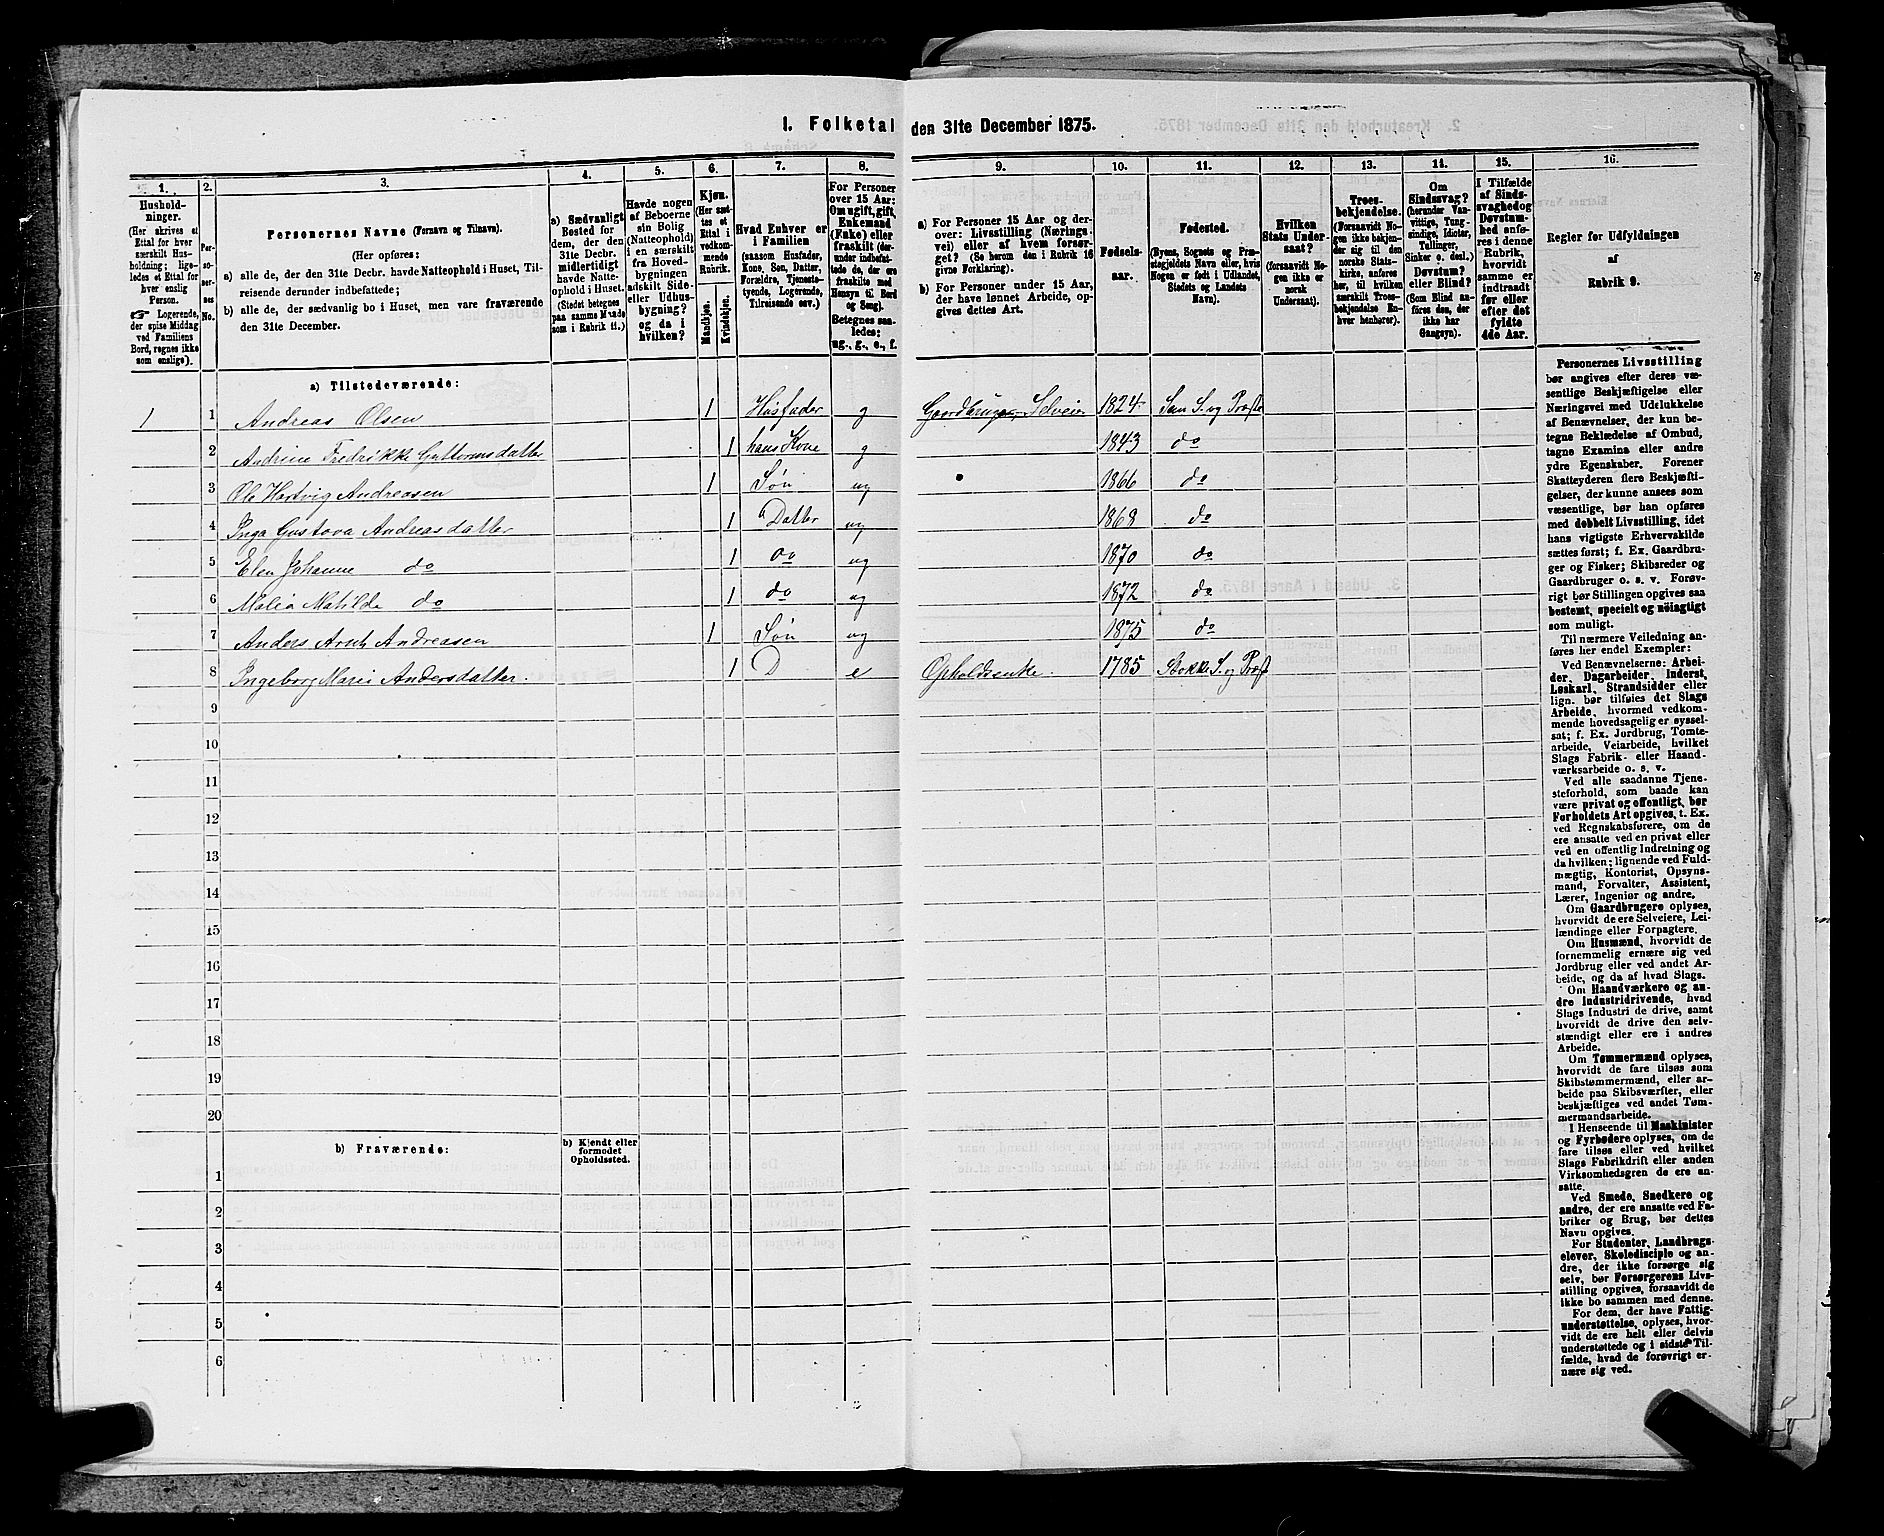 1. Folketal den 31te December 1875.
1.
2.
3.
4.
5.
6.
7.
8.
9.
10.
11.
12.
13.
14.
15.
16.
Husholdninger.
(Her skrives et
Ettal for hver
særskilt Husholdning;
ligeledes
et Ettal for
hver enslig
Person.
☞ Logerende,
der spise Middag
ved Familiens
Bord, regnes ikke
som enslige).
Personernes No.
Personernes Navne (Fornavn og Tilnavn).
(Her opføres:
a) alle de, der den 31te Decbr. havde Natteophold i Huset, Tilreisende
derunder indbefattede;
b) alle de, der sædvanlig bo i Huset, men vare fraværende
den 31te December.
a) Sædvanligt
Bosted for
dem, der den
31te Decbr.
midlertidigt
havde Natteophold
i Huset.
(Stedet betegnes
paa samme Maade
som i Rubrik 11.)
Havde nogen
af Beboerne
sin Bolig
(Natteophold)
i en særskilt
fra Hovedbygningen
adskilt Side-
eller Udhusbygning?
og da i
hvilken?
Kjøn.
(Her sættes
et
Ettal i
vedkommende
Rubrik.
Mandkjøn.
Kvindekjøn.
Hvad Enhver er
i Familien
(saasom Husfader,
Kone, Søn, Datter,
Forældre, Tjenestetyende,
Logerende,
Tilreisende osv.)
For Personer
over 15 Aar:
Om ugift, gift,
Enkemand
(Enke) eller
fraskilt (derunder
indbefattede
de, der ere
fraskilte med
Hensyn til Bord
og Seng).
Betegnes saaledes:
ug., g., e., f.
a) For Personer 15 Aar og derover:
Livsstilling (Næringsvei)
eller af hvem forsørget?
(Se herom den i Rubrik 16
givne Forklaring).
b) For Personer under 15 Aar,
der have lønnet Arbeide, opgives
dettes Art.
Fødselsaar.
Fødested.
(Byens, Sognets og Præstegjeldets
Navn eller, hvis
Nogen er født i Udlandet,
Stedets og Landets
Navn).
Hvilken
Stats Undersaat?
(forsaavidt Nogen
ikke er
norsk
Undersaat).
Troesbekjendelse.
(Forsaavidt Nogen
ikke bekjender
sig til
den norske Statskirke,
anføres
her, til hvilken
særskilt Troesbekjendelse
Enhver
henhører).
Om
Sindssvag?
(herunder Vanvittige,
Tungsindige,
Idioter,
Tullinger,
Sinker o. desl.)
Døvstum?
eller Blind?
(Som Blind anføres
den, der
ikke har
Gangsyn).
I Tilfælde
af Sindssvaghed
og
Døvstumhed
anføres
i denne
Rubrik,
hvorvidt
samme er
indtraadt
før eller
efter det
fyldte
4de Aar.
Regler for Udfyldningen
af
Rubrik 9.
a) Tilstedeværende:
1 1 Andreas Olsen 1 Husfader g Gaardbruger Selveier 1824 Sem S. og Præstg
2 Andrine Fredrikke Guttormsdatter 1 hans Kone g 1843 do
3 Ole Hartvig Andreasen 1 Søn ug 1866 do
4 Inga Gustava Andreasdatter 1 Datter ug 1868 do
5 Elen Johanne do 1 do ug 1870 do
6 Malia Matilde do 1 do ug 1872 do
7 Anders Arnt Andreasen 1 Søn ug 1875 do
8 Ingeborg Marie Andersdatter. 1 D e Opholdsenke. 1785 Stokke S. og Præst
9
10
11
12
13
14
15
16
17
18
19
20
b) Fraværende:
b) Kjendt eller
formodet
Opholdssted.
1
2
3
4
5
6
Personernes Livsstilling
bør angives efter deres væsentlige
Beskjæftigelse eller
Næringsvei med Udelukkelse
af Benævnelser, der kun betegne
Beklædelse af Ombud,
tagne Examina eller andre
ydre Egenskaber. Forener
Skatteyderen flere Beskjæftigelser,
der kunne ansees som
væsentlige, bør han opføres
med dobbelt Livsstilling, idet
hans vigtigste Erhvervskilde
sættes først; f. Ex. Gaardbruger
og Fisker; Skibsreder og
Gaardbruger o. s. v. Forøvrigt
bør Stillingen opgives saa
bestemt, specielt og nöiagtigt
som muligt.
Til nærmere Veiledning anføres
her endel Exempler:
Ved Benævnelserne: Arbeider,
Dagarbeider, Inderst,
Løskarl, Strandsidder eller
lign. bør tilføies det Slags
Arbeide, hvormed vedkommende
hovedsagelig er sysselsat;
f. Ex. Jordbrug, Tomtearbeide,
Veiarbeide, hvilket
Slags Fabrik- eller Haandværksarbeide
o. s. v.
Ved alle saadanne Tjenesteforhold,
som baade kan
være privat og offentligt, bør
Forholdets Art opgives, t. Ex.
ved Regnskabsførere, om de
ere ansatte ved en privat eller
ved en offentlig Indretning og
da hvilken; lignende ved Fuldmægtig,
Kontorist, Opsynsmand,
Forvalter, Assistent,
Lærer, Ingeniør og andre.
Om Gaardbrugere oplyses,
hvorvidt de ere Selveiere, Leilændinge
eller Forpagtere.
Om Husmænd, hvorvidt de
fornemmelig ernære sig ved
Jordbrug eller ved andet Arbeide,
og da af hvad Slags.
Om Haandværkere og andre
Industridrivende, hvad
Slags Industri de drive, samt
hvorvidt de drive den selvstændigt
eller ere i andres
Arbeide.
Om Tømmermænd oplyses,
hvorvidt de fare tilsøs som
Skibstømmermænd, eller arbeide
paa Skibsværfter, eller
beskjæftiges ved andet Tømmermandsarbeide.
I Henseende til Maskinister
og Fyrbødere oplyses, om de
fare tilsøs eller ved hvilket
Slags Fabrikdrift eller anden
Virksomhedsgren de ere ansatte.
Ved Smede, Snedkere og
andre, der ere ansatte ved Fabriker
og Brug, bør dettes
Navn opgives.
For Studenter, Landbrugselever,
Skoledisciple og andre,
der ikke forsørge sig
selv, bør Forsørgerens Livsstilling
opgives, forsaavidt de
ikke bo sammen med denne.
For dem, der have Fattigunderstøttelse,
oplyses, hvorvidt
de ere helt eller delvis
understøttede og i sidste Tilfælde,
hvad de forøvrigt ernære
sig ved.